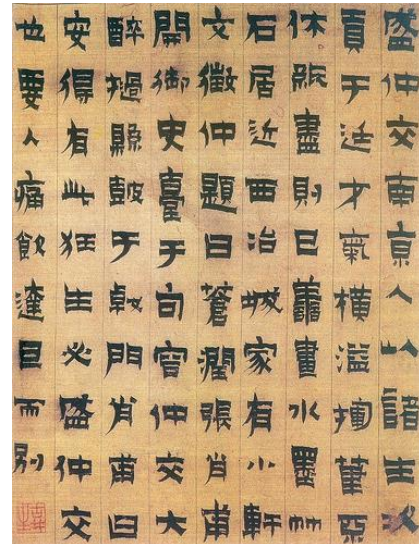 盛仲交南京人以諸生
貢于廷才氣橫溢揮筆
休紙盡則已善畫水墨竹
石居近西治城家有小軒
文徵仲題曰蒼潤張肖甫
開御史臺于句容仲交大
醉撾縣鼓于戟門肖甫曰
安得有此狂生必盛仲交
也要人痛飲達旦而別